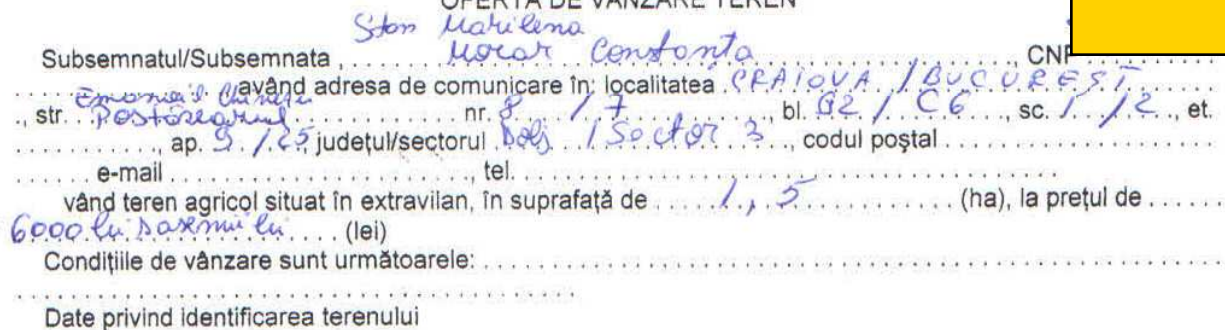 OFERTA DE VÂNZARE TEREN
Stan Marilena
Subsemnatul/Subsemnata , Morar Constanța , CNP
având adresa de comunicare în: localitatea CRAIOVA / BUCUREȘTI
., str. nr. 8 / 7 , bl. G2 / C6 , sc. 1 / 2 , et.
, ap. 9 / 25 județul/sectorul Dolj / Sector 3 , codul poștal
e-mail , tel.
vând teren agricol situat în extravilan, în suprafață de 1,5 (ha), la prețul de
6000 lei șasemii lei (lei)
Condițiile de vânzare sunt următoarele:
Date privind identificarea terenului